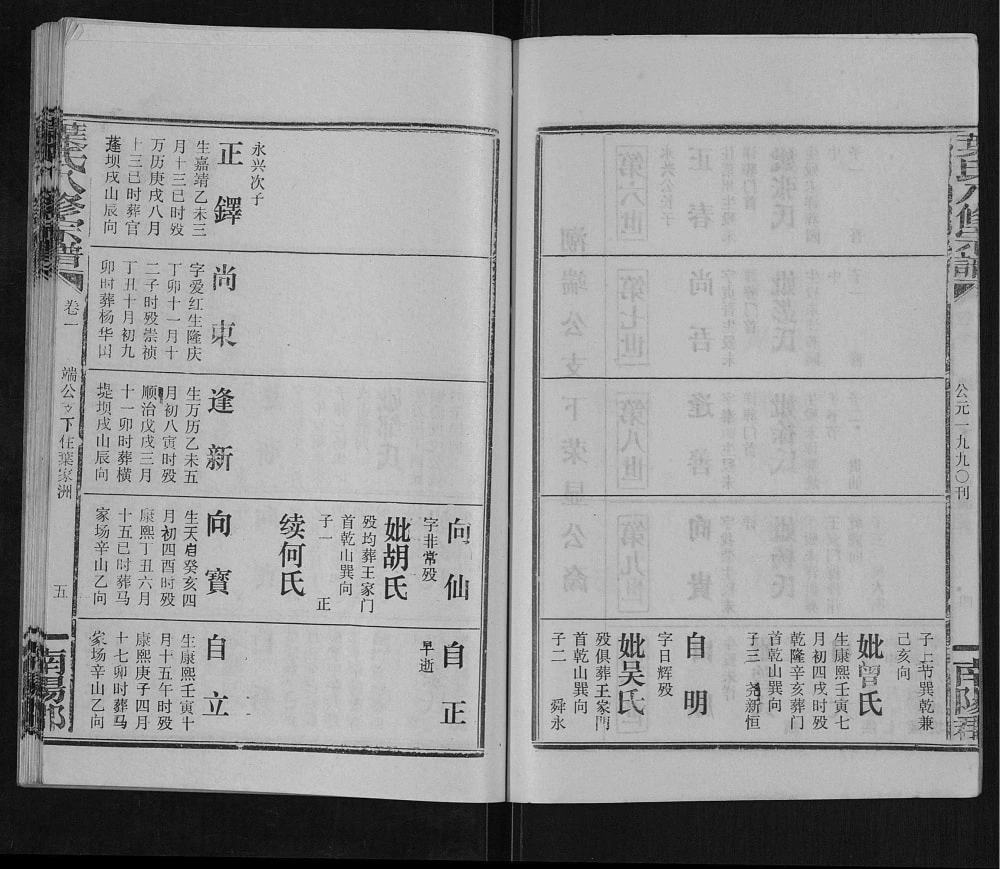 葉氏八修宗譜
公元一九九〇刊
南陽郡
己亥向
妣曾氏
生康熙壬寅七
月初四戌时殁
乾隆辛亥葬门
首乾山巽向
子三 尧新恒
自明
字日辉殁
妣吴氏
殁俱葬王家門
首乾山巽向
子二 舜永
向仙
字非常殁
妣胡氏
殁均葬王家门
首乾山巽向
子一 正
续何氏
自正
早逝
永兴次子
正鐸
生嘉靖乙未三
月十三巳时殁
万历庚戌八月
十三巳时葬官
蓬坝戌山辰向
尚東
字爱红生隆庆
丁卯十一月十
二子时殁崇祯
丁丑十月初九
卯时葬杨华
逢新
生万历乙未五
月初八寅时殁
顺治戊戌三月
十一卯时葬横
堤坝戌山辰向
向寶
生天启癸亥四
月初四酉时殁
康熙丁丑六月
十五巳时葬马
家场辛山乙向
自立
生康熙壬寅十
月十五午时殁
康熙庚子四月
十七卯时葬马
家场辛山乙向
葉氏八修宗譜
卷一
端公支下住葉家洲
五
南陽郡